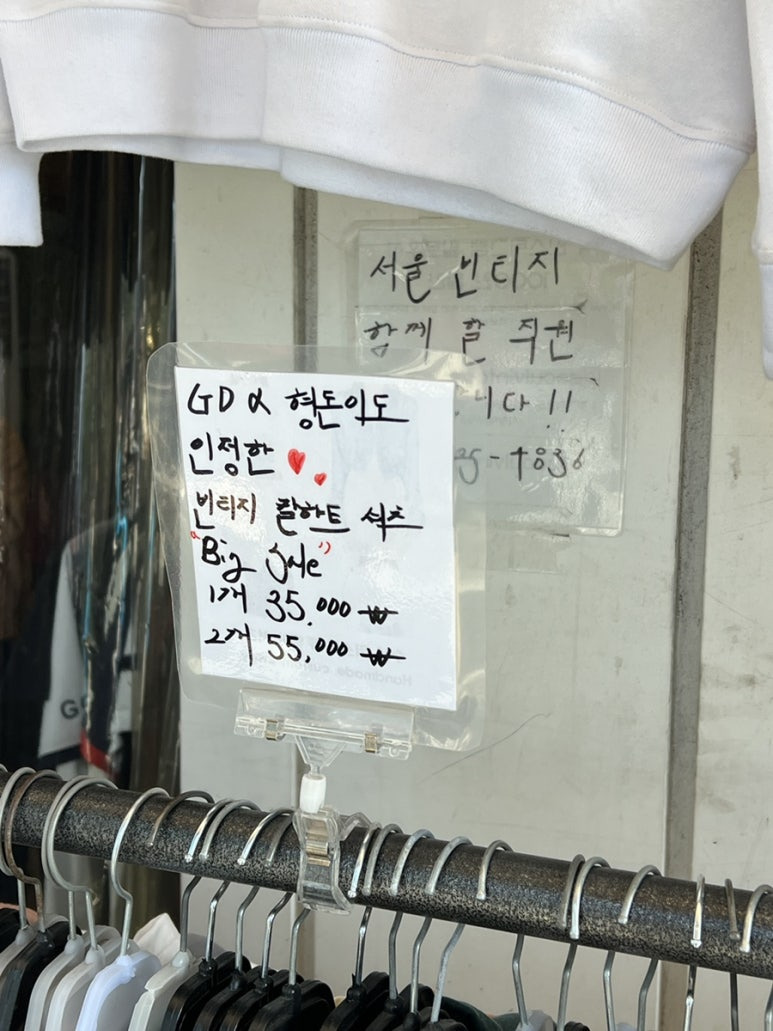 서울 빈티지
함께 할 직원
니다!!
GD & 형돈이도
인정한
빈티지 칼하트 셔츠
"Big Sale"
1개 35,000 ₩
2개 55,000 ₩